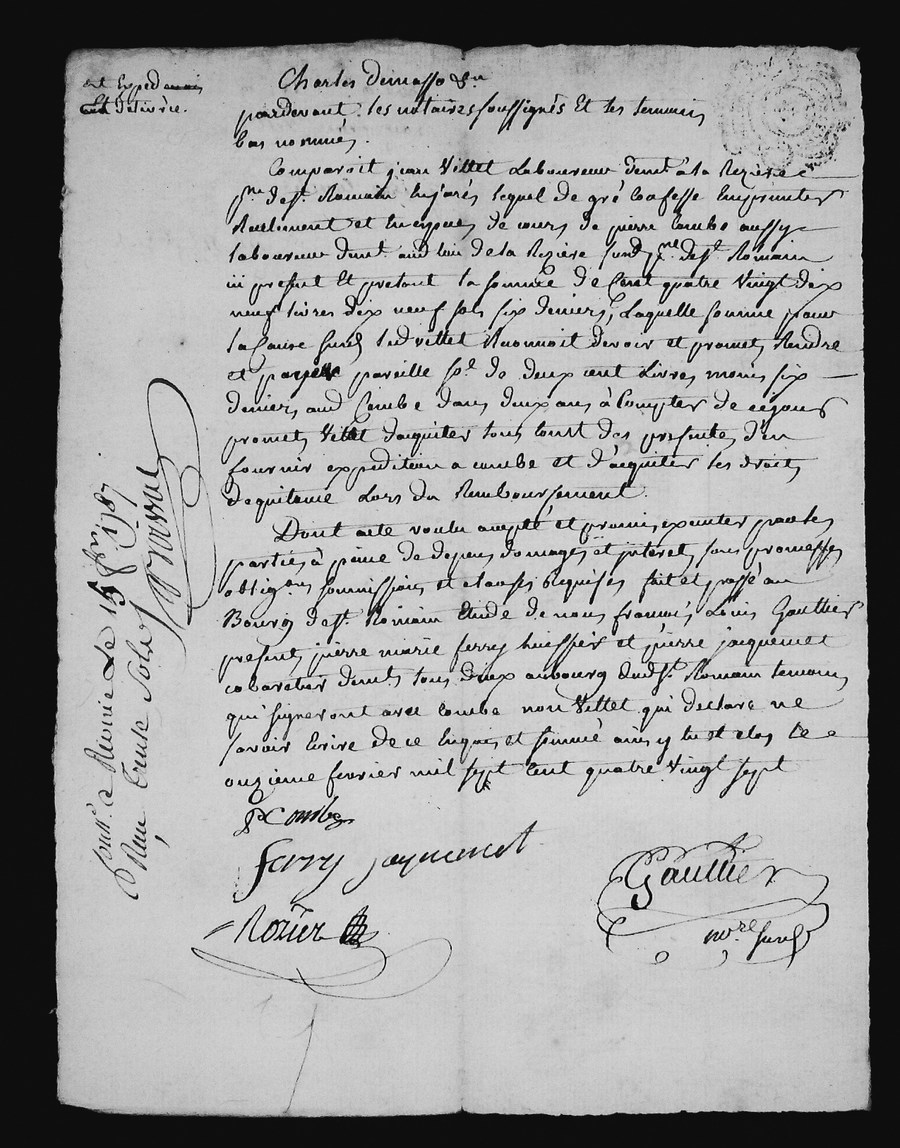 est Exped
Et delivrée.
Charles demasso &n
pardevant les notaires soussignés Et les temoins
bas nommés.
Comparoit jean Villet Laboureur demt a la Reziere
psse de st. Romain En jarés lequel de gré Confesse Emprunter
Reelement et En espece de cours de pierre Combe aussy
laboureur demt. aud lieu de la Reziere susd psse de st. Romain
ici present Et pretant la somme de Cent quatre Vingt dix
neuf livres dix neuf sols six deniers, Laquelle somme pour
la Cause susd led villet Reconnoit devoir et promet Rendre
et payer pareille se. de deux cent Livres moins six
deniers aud Combe dans deux ans à Compter de ce jour
promet Villet d'aquiter tous Cout des presentes d'en
fournir expedition a combe et d'acquiter les droits
de quitance Lors du Remboursement.
Dont acte voulu accepté et promis executer par les
parties à peine de depens domages et interets sous promesses
obligons soumissions et clauses Requises fait et passé au
Bourg de st. Romain Etude de nous françois Louis Gaultier
presents pierre marie ferry huissier et pierre jaquemet
cabaretier demts. tous deux au bourg dud st. Romain temoins
qui signeront avec Combe non Villet qui declare ne
savoir Ecrire de ce Enquis et sommé ainsy lu et clos Le
onzieme fevrier mil sept Cent quatre Vingt sept
P Combe
ferry jaquemet
Rozier
Gaultier
nore susd
Conllé. a Riverie Le 15 fbre 1787
Reçu Trente Sols